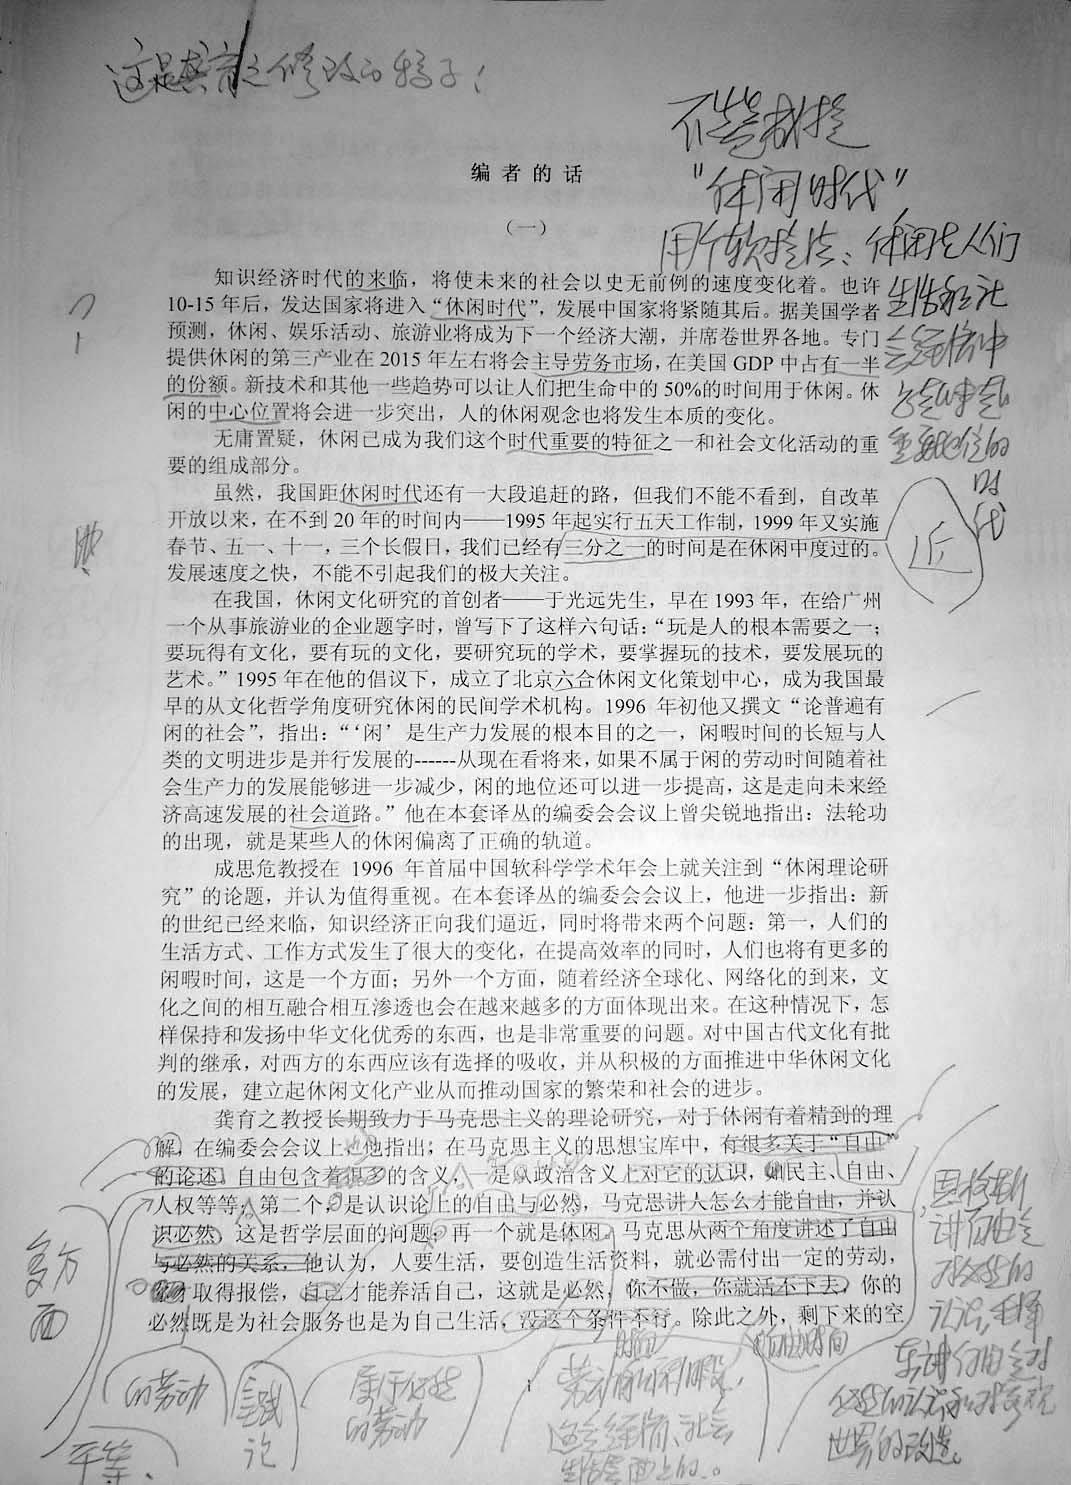 这是龚育之修改的稿子！
不英我提
"休闲时代"
用个软提法：休闲在人们
生活和社
会经济中
占越来越
重要地位的
时代
近
编者的话
（一）
知识经济时代的来临，将使未来的社会以史无前例的速度变化着。也许
10-15 年后，发达国家将进入“休闲时代”，发展中国家将紧随其后。据美国学者
预测，休闲、娱乐活动、旅游业将成为下一个经济大潮，并席卷世界各地。专门
提供休闲的第三产业在 2015 年左右将会主导劳务市场，在美国 GDP 中占有一半
的份额。新技术和其他一些趋势可以让人们把生命中的 50%的时间用于休闲。休
闲的中心位置将会进一步突出，人的休闲观念也将发生本质的变化。
无庸置疑，休闲已成为我们这个时代重要的特征之一和社会文化活动的重
要的组成部分。
虽然，我国距休闲时代还有一大段追赶的路，但我们不能不看到，自改革
开放以来，在不到 20 年的时间内——1995 年起实行五天工作制，1999 年又实施
春节、五一、十一，三个长假日，我们已经有三分之一的时间是在休闲中度过的。
发展速度之快，不能不引起我们的极大关注。
在我国，休闲文化研究的首创者——于光远先生，早在 1993 年，在给广州
一个从事旅游业的企业题字时，曾写下了这样六句话：“玩是人的根本需要之一；
要玩得有文化，要有玩的文化，要研究玩的学术，要掌握玩的技术，要发展玩的
艺术。”1995 年在他的倡议下，成立了北京六合休闲文化策划中心，成为我国最
早的从文化哲学角度研究休闲的民间学术机构。1996 年初他又撰文“论普遍有
闲的社会”，指出：“‘闲’是生产力发展的根本目的之一，闲暇时间的长短与人
类的文明进步是并行发展的------从现在看将来，如果不属于闲的劳动时间随着社
会生产力的发展能够进一步减少，闲的地位还可以进一步提高，这是走向未来经
济高速发展的社会道路。”他在本套译丛的编委会会议上曾尖锐地指出：法轮功
的出现，就是某些人的休闲偏离了正确的轨道。
成思危教授在 1996 年首届中国软科学学术年会上就关注到“休闲理论研
究”的论题，并认为值得重视。在本套译丛的编委会会议上，他进一步指出：新
的世纪已经来临，知识经济正向我们逼近，同时将带来两个问题：第一，人们的
生活方式、工作方式发生了很大的变化，在提高效率的同时，人们也将有更多的
闲暇时间，这是一个方面；另外一个方面，随着经济全球化、网络化的到来，文
化之间的相互融合相互渗透也会在越来越多的方面体现出来。在这种情况下，怎
样保持和发扬中华文化优秀的东西，也是非常重要的问题。对中国古代文化有批
判的继承，对西方的东西应该有选择的吸收，并从积极的方面推进中华休闲文化
的发展，建立起休闲文化产业从而推动国家的繁荣和社会的进步。
龚育之教授长期致力于马克思主义的理论研究，对于休闲有着精到的理
解，在编委会会议上他指出：在马克思主义的思想宝库中，有很多关于“自由”
的论述，自由包含着很多的含义，一是从政治含义上对它的认识，如民主、自由、
人权等等；第二个，是认识论上的自由与必然，马克思讲人怎么才能自由，并认
识必然，这是哲学层面的问题；再一个就是休闲，马克思从两个角度讲述了自由
与必然的关系，他认为，人要生活，要创造生活资料，就必需付出一定的劳动，
才取得报偿，自己才能养活自己，这就是必然，你不做，你就活不下去，你的
必然既是为社会服务也是为自己生活，没这个条件不行。除此之外，剩下来的空
多方
面
的劳动
平等、
属于必然
的劳动
时间
自由时间
这是经济、社会
生活层面上的。
恩格斯
讲自由是
对必然的
认识，毛泽
东讲自由是对
必然的认识和对客观
世界的改造。
i